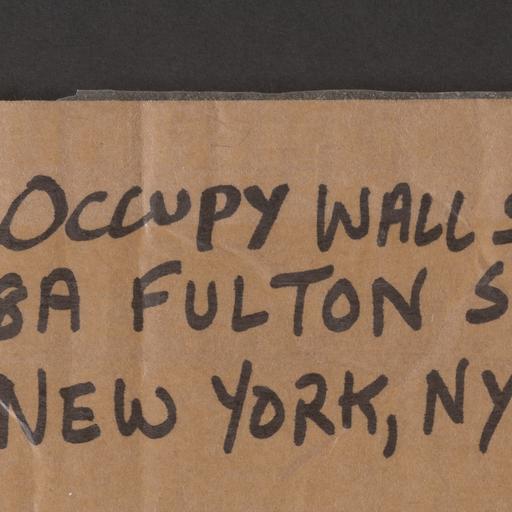 OCCUPY WALL S
8A FULTON S
NEW YORK, NY